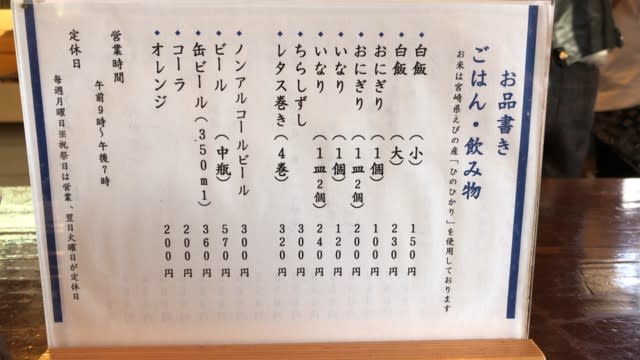 お品書き
ごはん・飲み物
お米は宮崎県えびの産「ひのひかり」を使用しております
◆白飯(小) 150円
◆白飯(大) 230円
◆おにぎり(1個) 100円
◆おにぎり(1皿2個) 200円
◆いなり(1個) 120円
◆いなり(1皿2個) 240円
◆ちらしずし 300円
◆レタス巻き(4巻) 320円
◆ノンアルコールビール 300円
◆ビール(中瓶) 570円
◆缶ビール(350ml) 360円
◆コーラ 200円
◆オレンジ 200円
営業時間
午前9時~午後7時
定休日
毎週月曜日※祝祭日は営業、翌日火曜日が定休日